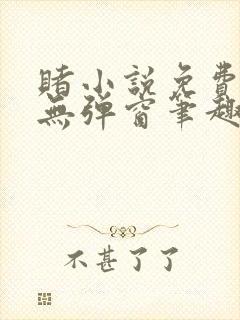 賭小説免費
無弹窗筆趣
不甚了了